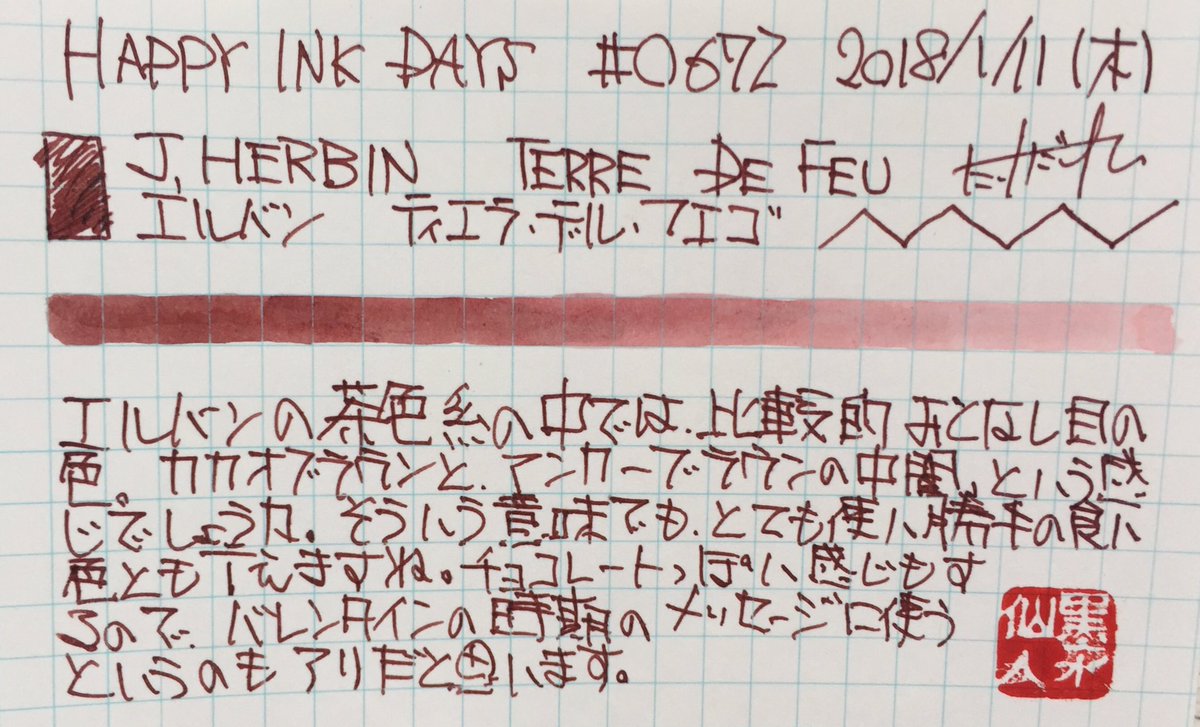 HAPPY INK DAYS #0672 2018/1/11 (木)
J. HERBIN TERRE DE FEU
エルバン ティエラ・デル・フエゴ
エルバンの茶色系の中では、比較的おとなし目の
色。カカオブラウンと、アンカーブラウンの中間、という感
じでしょうか。そういう意味でも、とても使い勝手の良い
色とも言えますね。チョコレートっぽい感じもす
るので、バレンタインの時期のメッセージに使う
というのもアリだと思います。
仙人